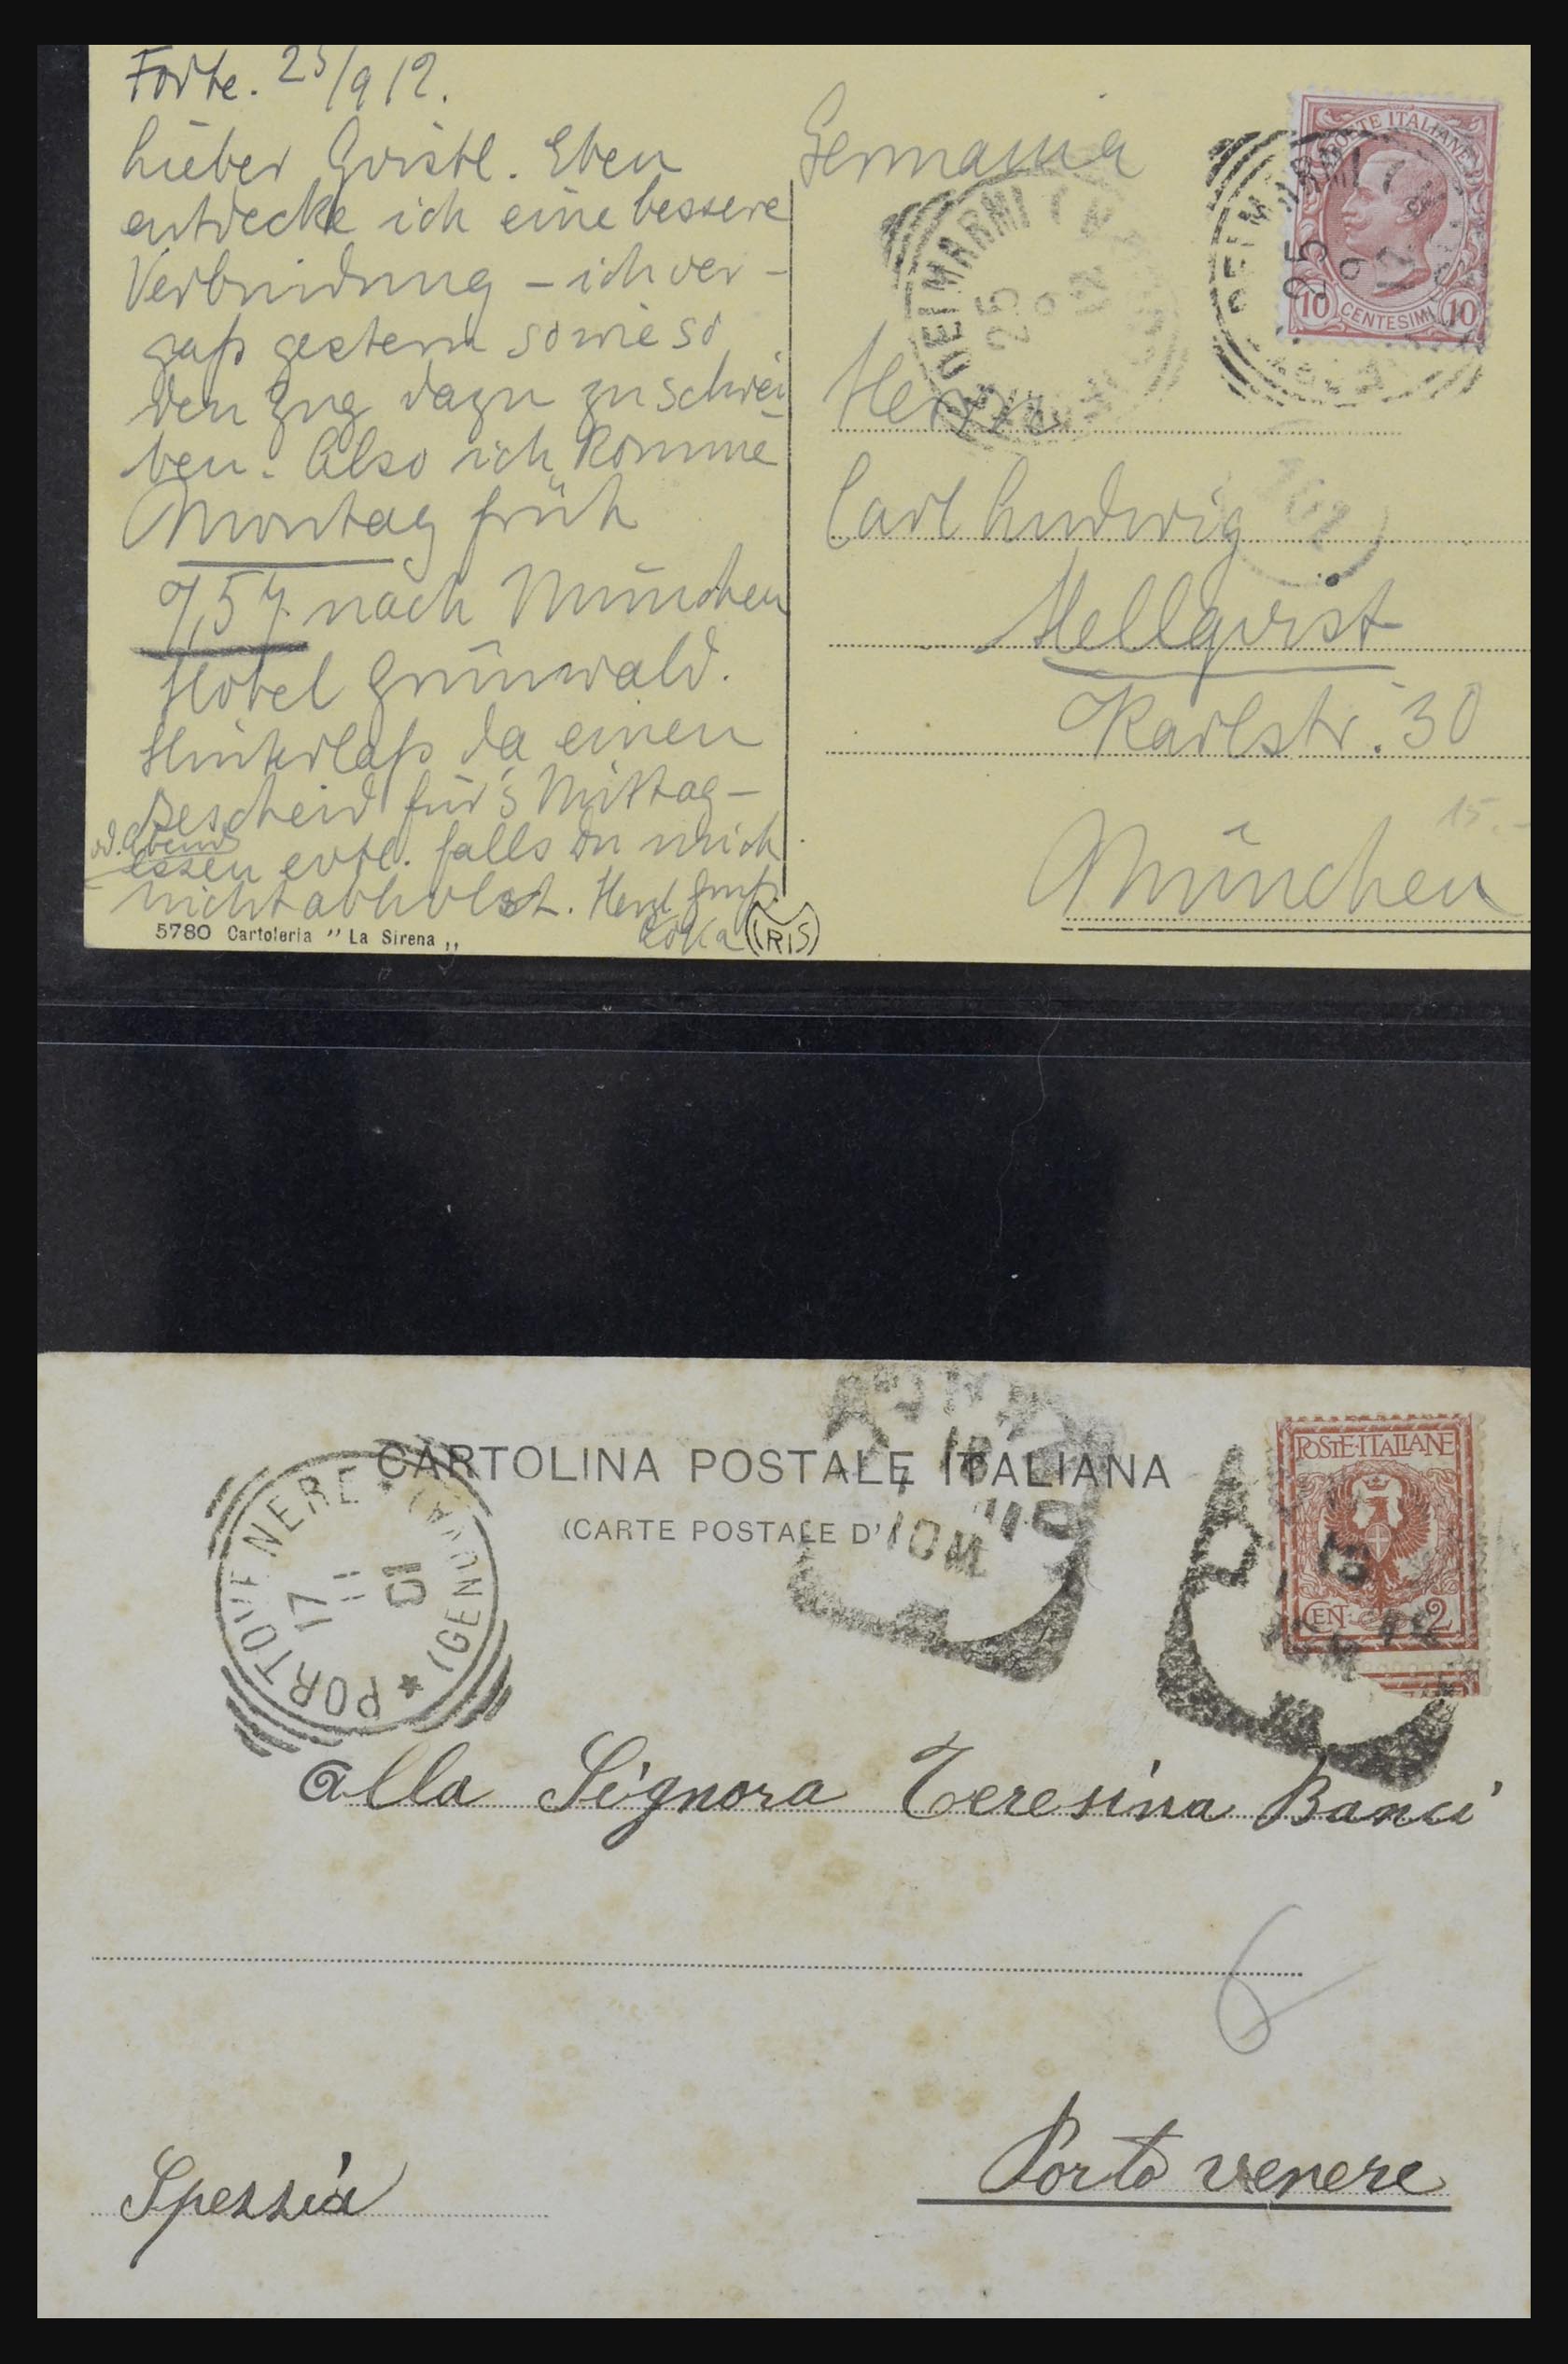 Forte. 25/9 12.
Lieber Qvistl. Eben
entdecke ich eine bessere
Verbindung – ich ver-
gaß gestern sowieso
den Zug dazu zu schrei
ben. Also ich komme
Montag früh
7,57 nach München
Hotel Grünwald.
Hinterlaß da einen
Bescheid für's Mittag-
od. Abend
essen evtl. falls Du mich
nicht abholst. Herzl Gruß
5780 Cartoleria " La Sirena „
IRIS
Germania
POSTE ITALIANE
10 CENTESIMI 10
DEI MARMI
25 9 12
Herrn
Carl Ludwig
Hellqvist
Karlstr. 30
15.-
München
CARTOLINA POSTALE ITALIANA
(CARTE POSTALE D'
POSTE·ITALIANE
CEN. 2
PORTOVENERE
(GENOVA)
17 11 01
10M
alla Signora Teresina Banci
6
Porto venere
Spezzia